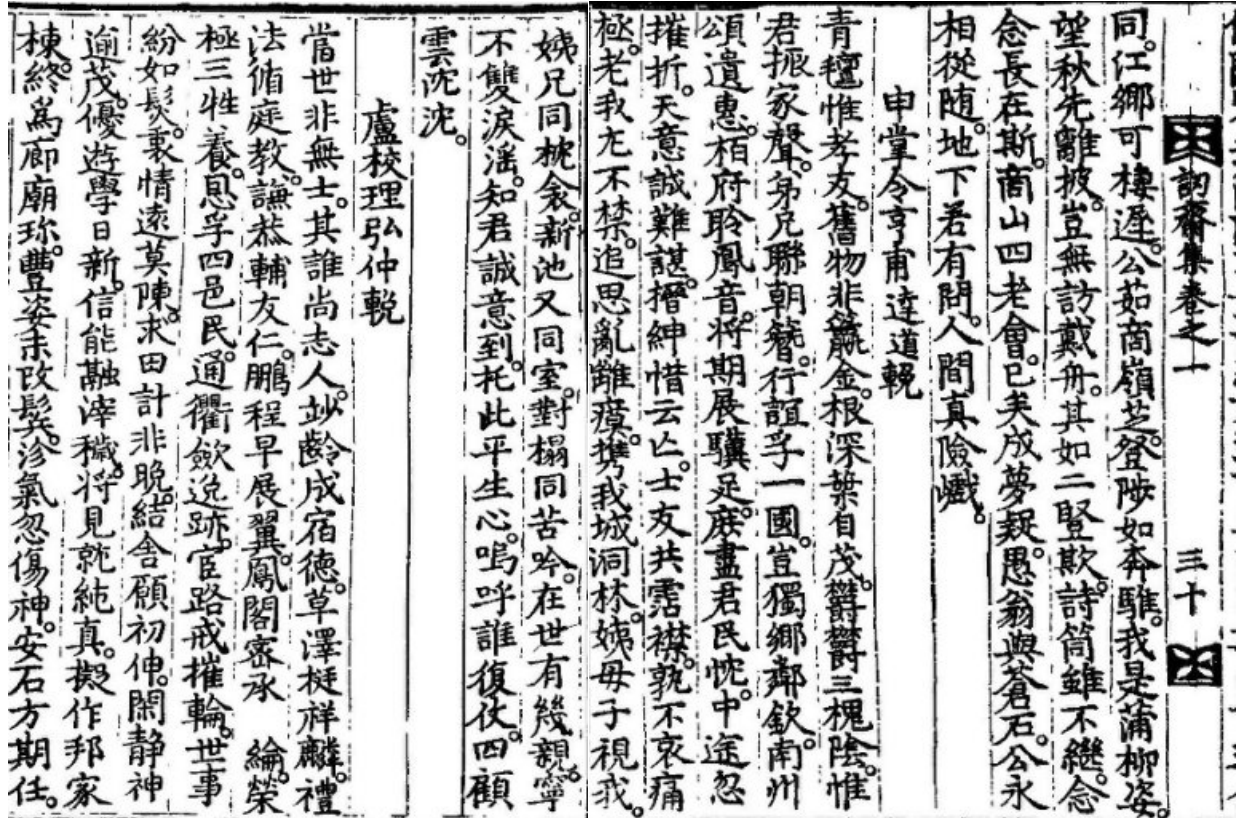 訒齋集卷之一
三十
同。江鄉可棲遲。公茹商嶺芝。登陟如奔騅。我是蒲柳姿。
望秋先離披。豈無訪戴舟。其如二豎欺。詩筒雖不繼。念
念長在斯。商山四老會。已矣成夢疑。愚翁與蒼石。公永
相從随。地下若有問。人間真險巇。
申掌令亨甫達道輓
青氊惟孝友。舊物非籯金。根深葉自茂。欝欝三槐陰。惟
君振家聲。弟兄聯朝簪。行誼孚一國。豈獨鄉鄰欽。南州
頌遺惠。栢府聆鳳音。将期展驥足。庶盡君民忱。中途忽
摧折。天意誠難諶。搢紳惜云亡。士友共霑襟。孰不哀痛
極。老我尤不禁。追思亂離瘼。携我城洞林。姨母子視我。
姨兄同枕衾。新池又同室。對榻同苦吟。在世有幾親。寧
不雙淚滛。知君誠意到。托此平生心。嗚呼誰復仗。四顧
雲沈沈。
盧校理弘仲輓
當世非無士。其誰尚志人。妙齡成宿德。草澤挺祥麟。禮
法脩庭教。謙恭輔友仁。鵬程早展翼。鳳閣密承 綸。榮
極三牲養。恩孚四邑民。通衢歛逸跡。宦路戒摧輪。世事
紛如髮。衷情遠莫陳。求田計非晚。結舍願初伸。閑静神
逾茂。優遊學日新。信能融滓穢。将見就純真。擬作邦家
棟。終爲廊廟珎。豐姿未改鬂。沴氣忽傷神。安石方期任。